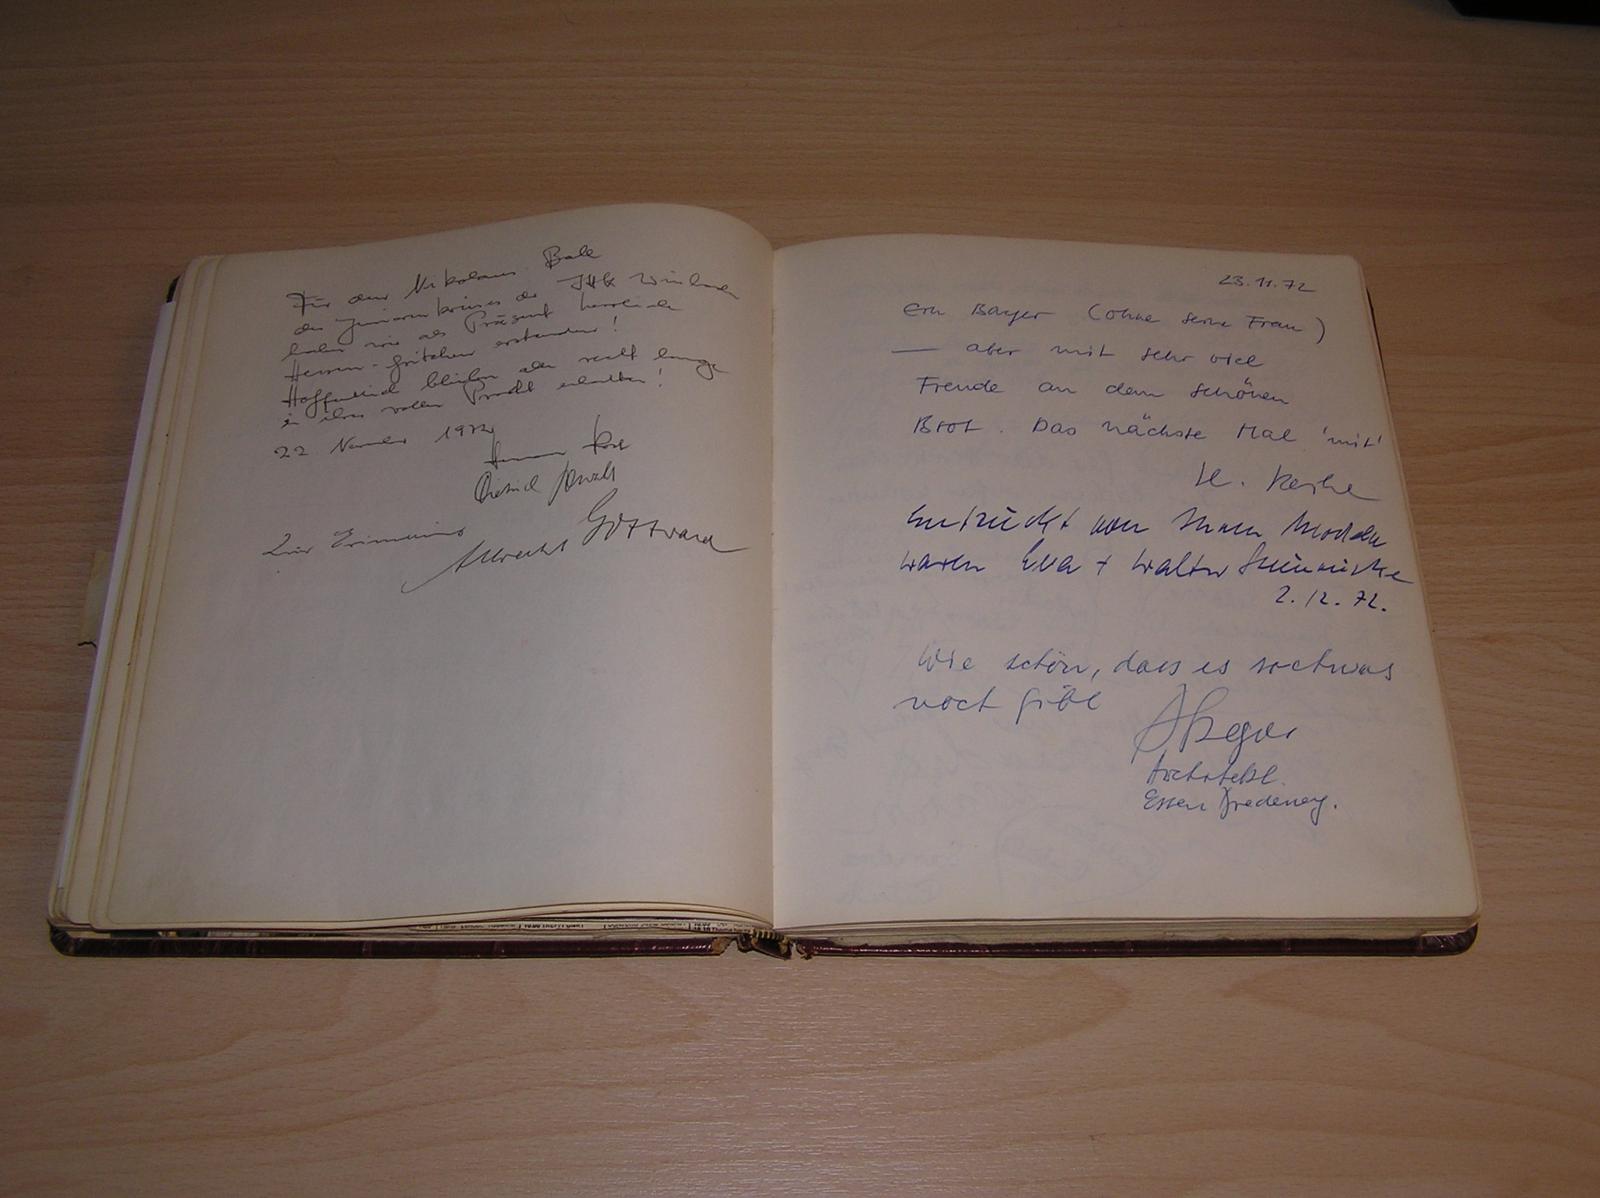 Für den Nikolaus Ball
des Juniorenkreises der IHK
haben wir als Präsent herrliche
Herren- erstanden!
Hoffentlich bleiben aber recht lange
in ihrer vollen Pracht erhalten!
22 November 1972
Dietrich
Zur Erinnerung
Albrecht Gottward
23.11.72
Ern Bayer (ohne seine Frau)
— aber mit sehr viel
Freude an dem schönen
Brot. Das nächste Mal 'mit'
H.
Entzückt von Ihren Modeln
waren Eva + Walter
2.12.72.
Wie schön, dass es soetwas
noch gibt
Architekt.
Essen Bredeney.